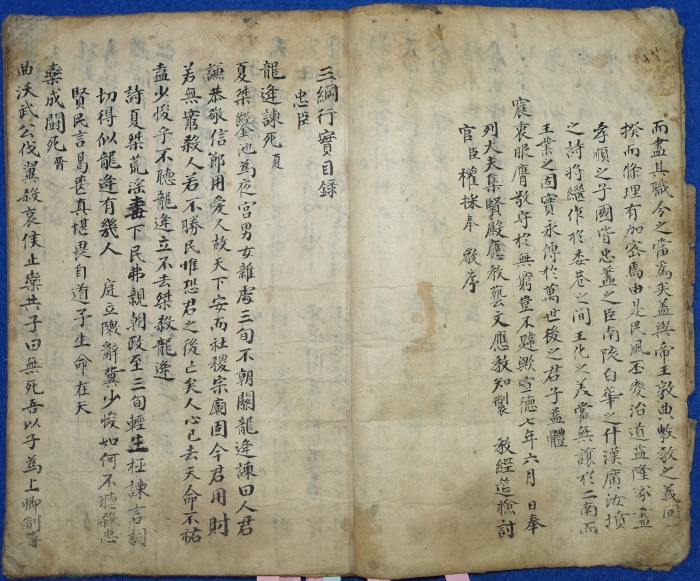 而盡其職今之當爲矣蓋與帝王敦典敷敎之義同
揆而條理有加密焉由是民風丕變治道益隆家盡
孝順之子國皆忠藎之臣南陔白華之什漢廣汝墳
之詩將繼作於委巷之間王化之美當無讓於二南而
王業之固實永傳於萬世後之君子益體
宸衷服膺敬守於無窮豈不韙歟宣德七年六月 日奉
列大夫集賢殿應敎藝文應敎知製 敎經筵檢討
官臣權採奉 敎序
三綱行實目錄
忠臣
龍逄諫死 夏
夏桀鑿池爲夜宮男女雜處三旬不朝關龍逄諫曰人君
謙恭敬信節用愛人故天下安而社稷宗廟固今君用財
若無窮殺人若不勝民惟恐君之後亡矣人心已去天命不祐
盍少悛乎不聽龍逄立不去桀殺龍逄
詩夏桀荒淫毒下民弗親朝政至三旬輕生極諫言詞
切得似龍逄有幾人 庭立陳辭冀少悛如何不聽殺忠
賢民言曷喪眞堪畏自道予生命在天
欒成鬪死 晉
曲沃武公伐翼殺哀侯止欒共子曰無死吾以子爲上卿制晉